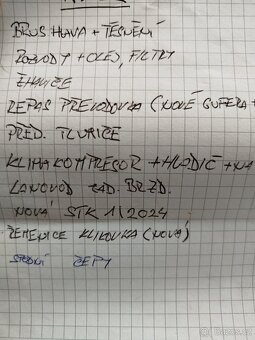 BRUS HLAVA + TĚSNĚNÍ
ROZVODY + OLEJ, FILTRY
ŽHAVIČE
REPAS PŘEVODOVKA (NOVÉ GUFERA +
PŘED. TLUMIČE
KLIMAKOMPRESOR + HLADIČ +
LANOVOD ZAD. BRZD.
NOVÁ STK 1/2024
ŘEMENICE KLIKOVKA (NOVÁ)
ČEPY